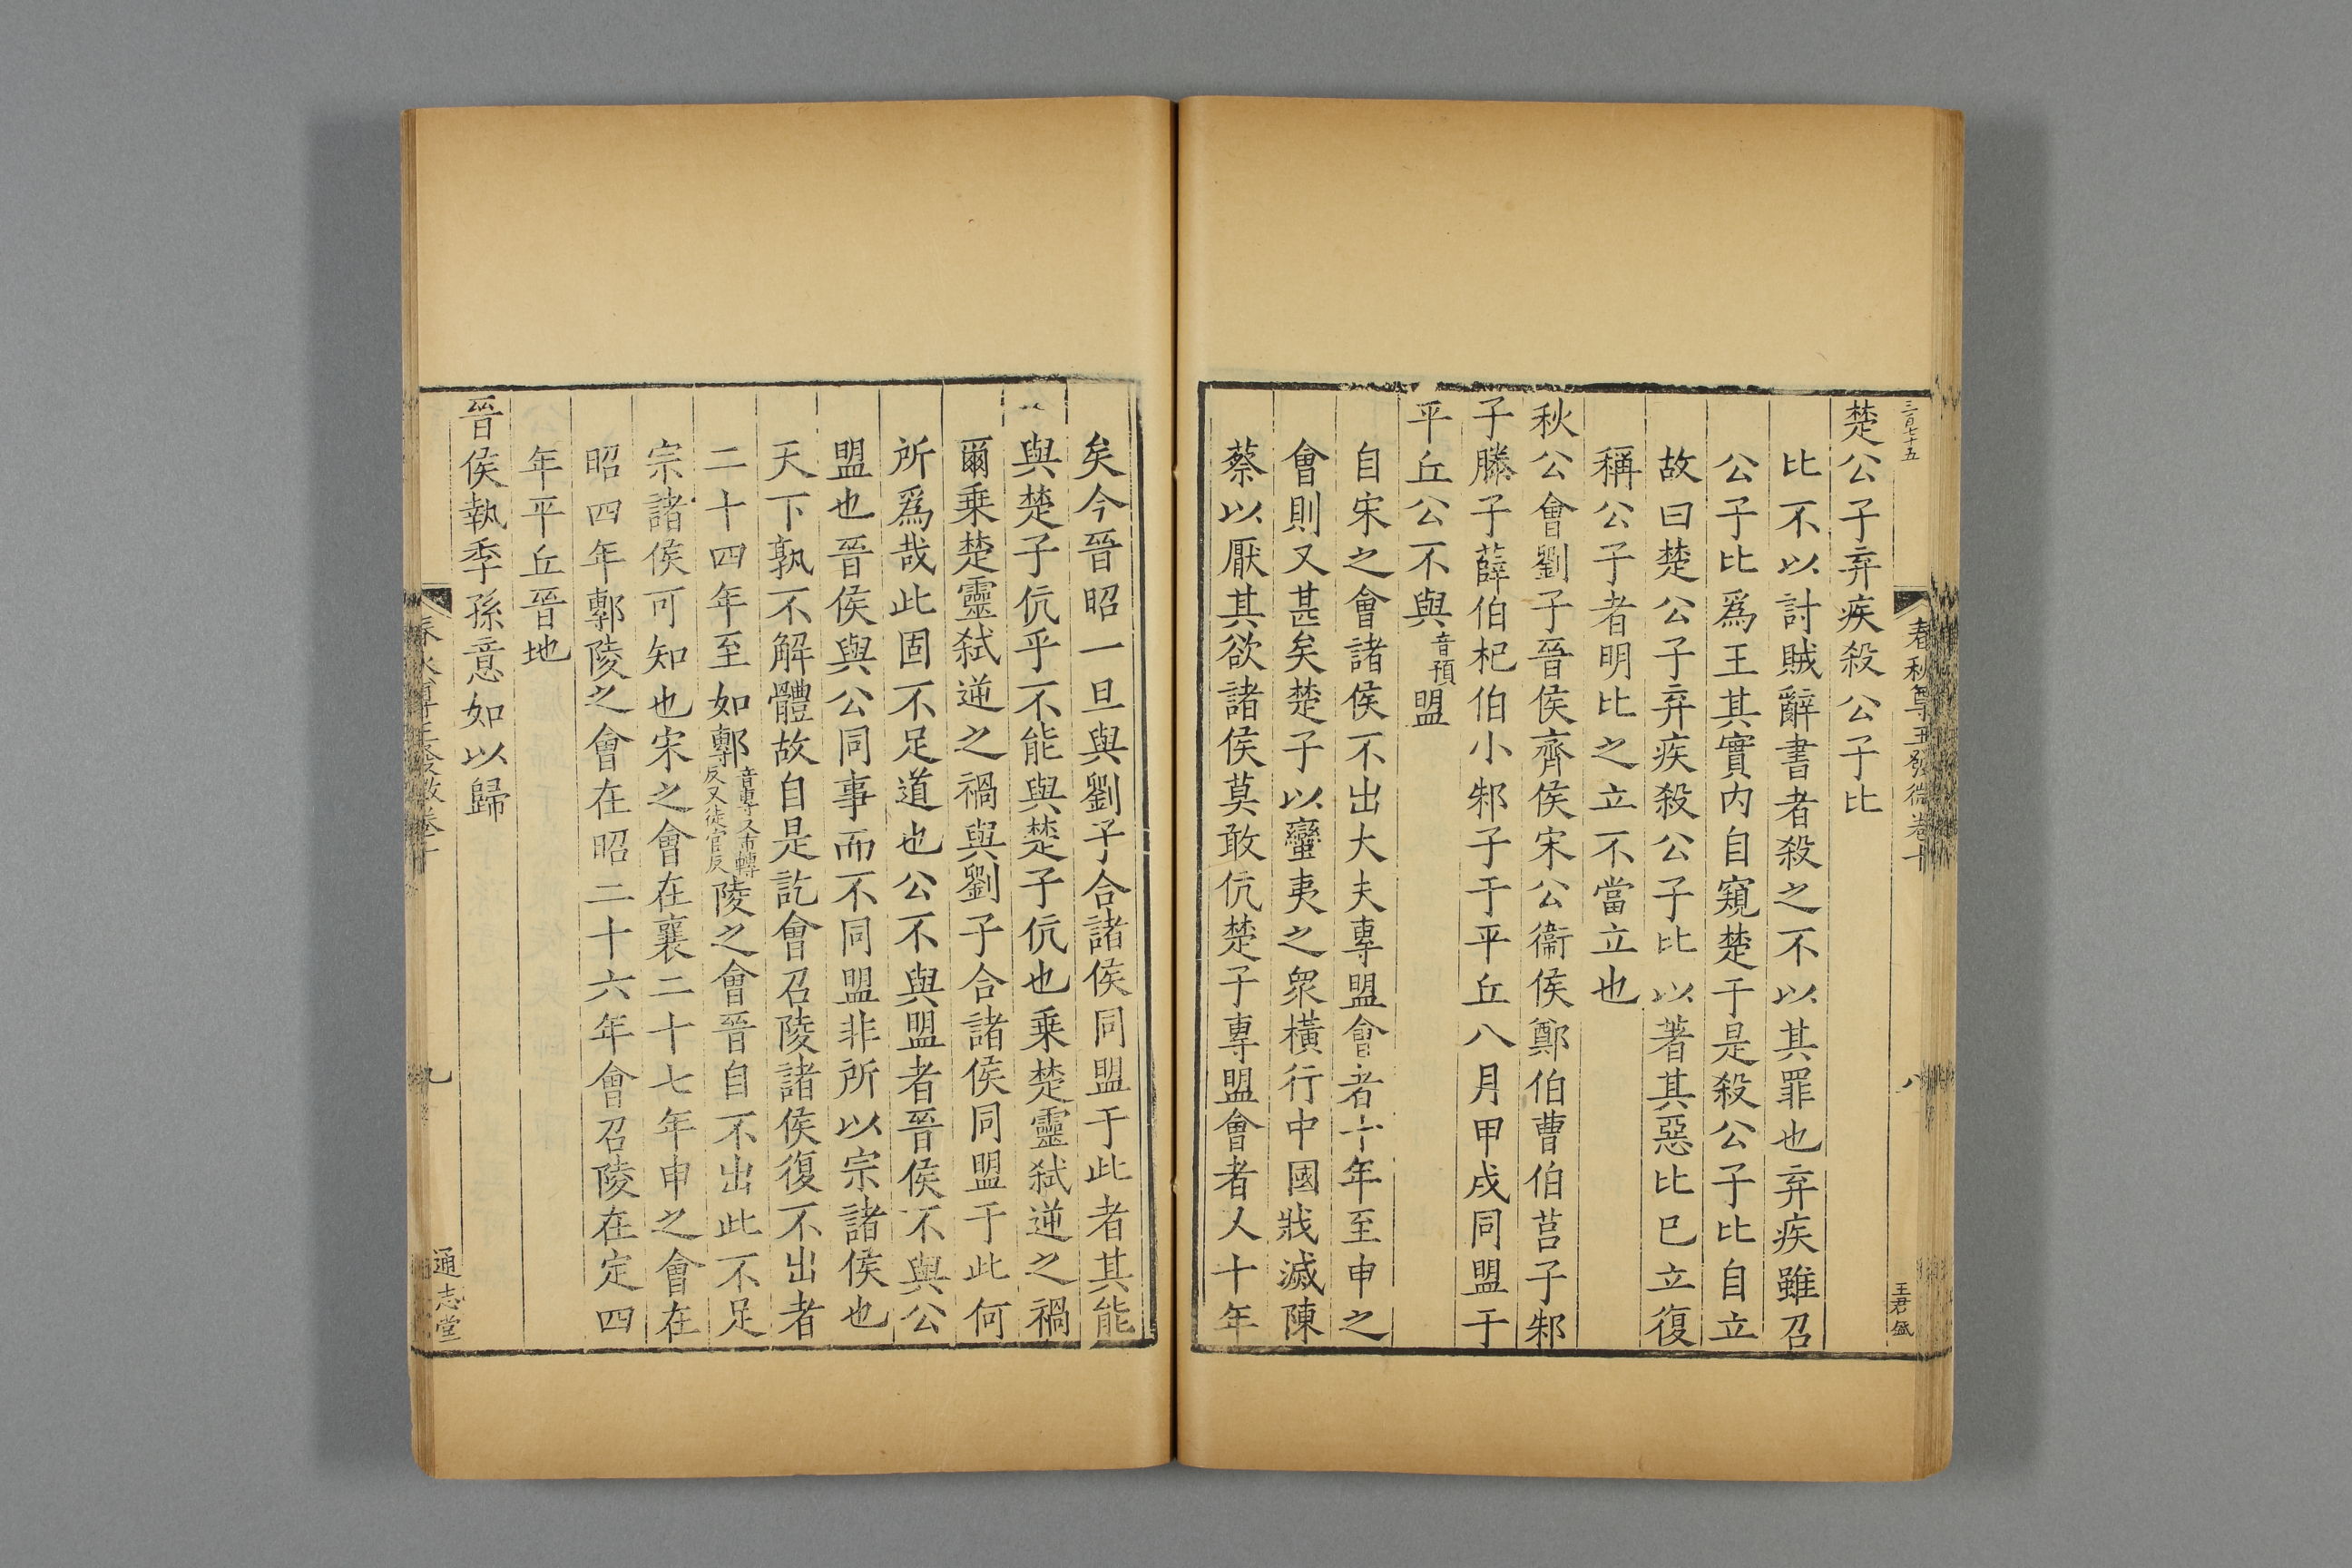 三百七十五
春秋尊王發微卷十
八
王君錫
楚公子弃疾殺公子比
比不以討賊辭書者殺之不以其罪也弃疾雖召
公子比爲王其實内自窺楚于是殺公子比自立
故曰楚公子弃疾殺公子比以著其惡比已立復
稱公子者明比之立不當立也
秋公會劉子晉侯齊侯宋公衞侯鄭伯曹伯莒子邾
子滕子薛伯杞伯小邾子于平丘八月甲戌同盟于
平丘公不與音預盟
自宋之會諸侯不出大夫專盟會者十年至申之
會則又甚矣楚子以蠻夷之衆橫行中國戕滅陳
蔡以厭其欲諸侯莫敢伉楚子專盟會者人十年
矣今晉昭一旦與劉子合諸侯同盟于此者其能
與楚子伉乎不能與楚子伉也乗楚靈弑逆之禍
爾乗楚靈弑逆之禍與劉子合諸侯同盟于此何
所爲哉此固不足道也公不與盟者晉侯不與公
盟也晉侯與公同事而不同盟非所以宗諸侯也
天下孰不解體故自是訖會召陵諸侯復不出者
二十四年至如鄟音專又市轉反又徒官反陵之會晉自不出此不足
宗諸侯可知也宋之會在襄二十七年申之會在
昭四年鄟陵之會在昭二十六年會召陵在定四
年平丘晉地
晉侯執季孫意如以歸
春秋尊王發微卷十
九
通志堂